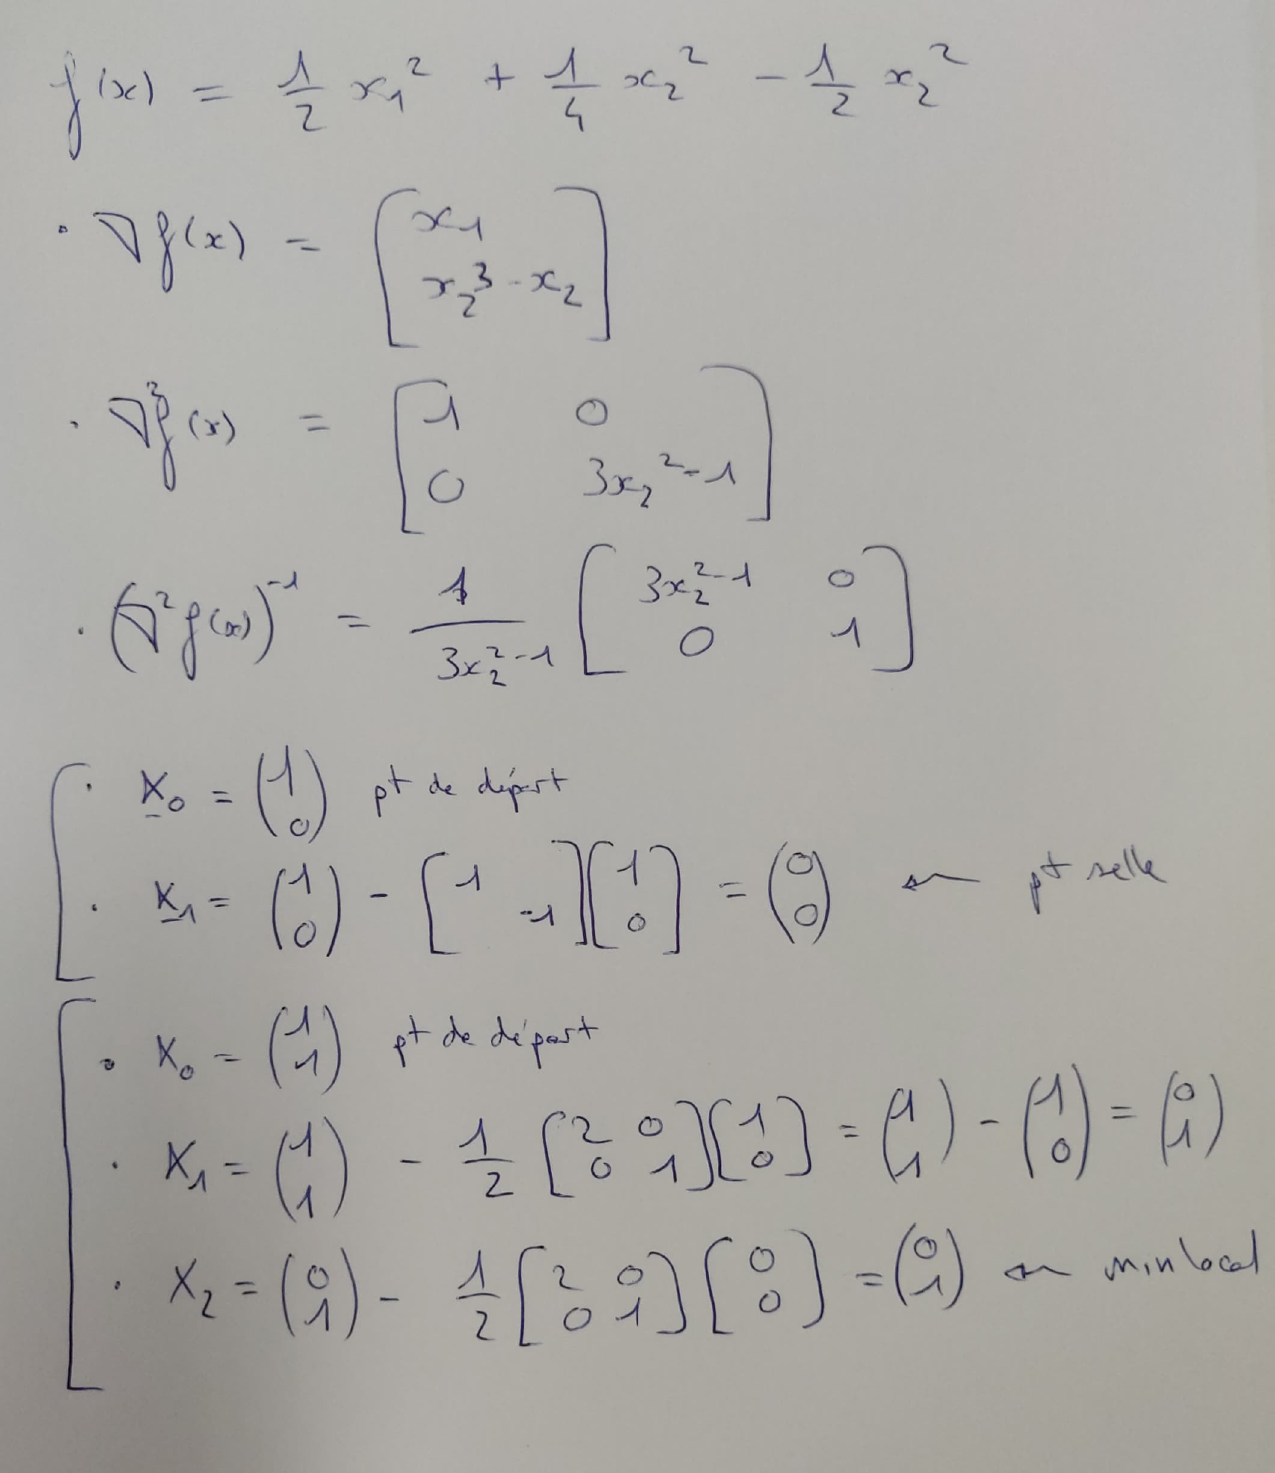 f(x) = 1/2 x₁² + 1/4 x₂² - 1/2 x₂²
· ∇f(x) = [x₁ ; x₂³ - x₂]
· ∇²f(x) = [1 0 ; 0 3x₂² - 1]
· (∇²f(x))⁻¹ = 1/(3x₂² - 1) [3x₂² - 1 0 ; 0 1]
· X₀ = (1 ; 0) pt de départ
· X₁ = (1 ; 0) - [1 ; -1][1 ; 0] = (0 ; 0) ← pt selle
· X₀ = (1 ; 1) pt de départ
· X₁ = (1 ; 1) - 1/2 [2 0 ; 0 1][1 ; 0] = (1 ; 1) - (1 ; 0) = (0 ; 1)
· X₂ = (0 ; 1) - 1/2 [2 0 ; 0 1][0 ; 0] = (0 ; 1) ← min local